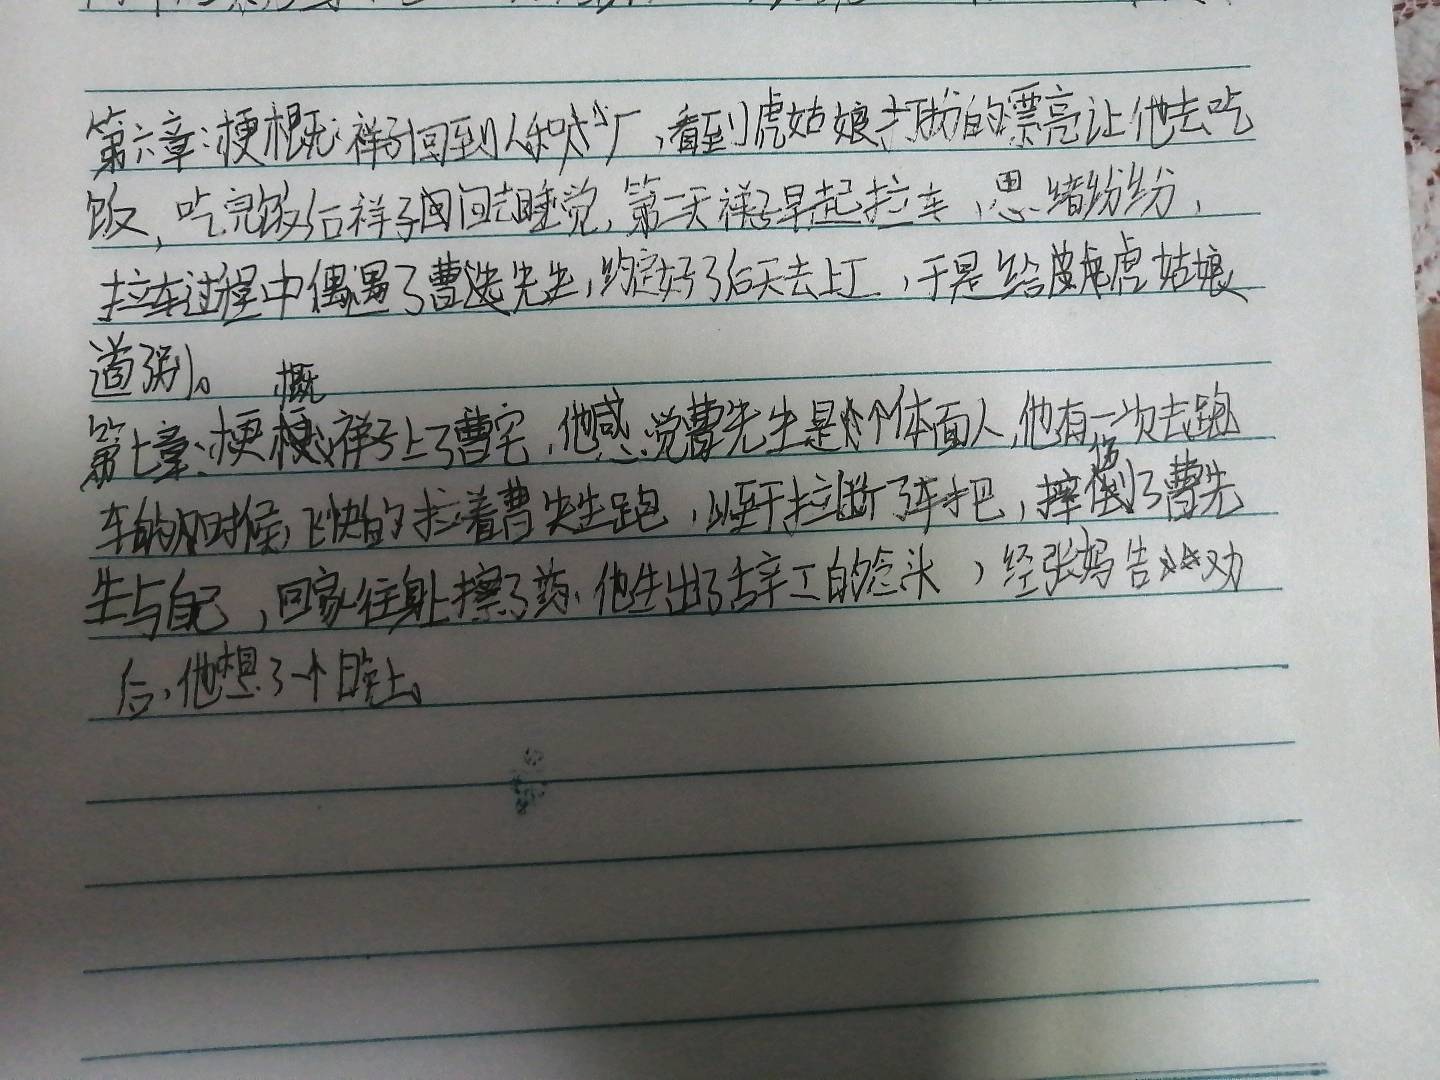 第六章:梗概:祥子回到人和厂,看到虎姑娘打扮的漂亮让他去吃
饭,吃完饭后祥子回去睡觉,第二天祥子早起拉车,思绪纷纷,
拉车过程中偶遇了曹先生,约定好了后天去上工,于是给虎姑娘
道别。
第七章:梗概:祥子上了曹宅,他感觉曹先生是个体面人,他有一次去跑
车的时候,飞快的拉着曹先生跑,以至于拉断了车把,摔伤了曹先
生与自己,回家往身上擦了药.他生出了辞工的念头,经张妈告劝
后,他想了一个晚上。